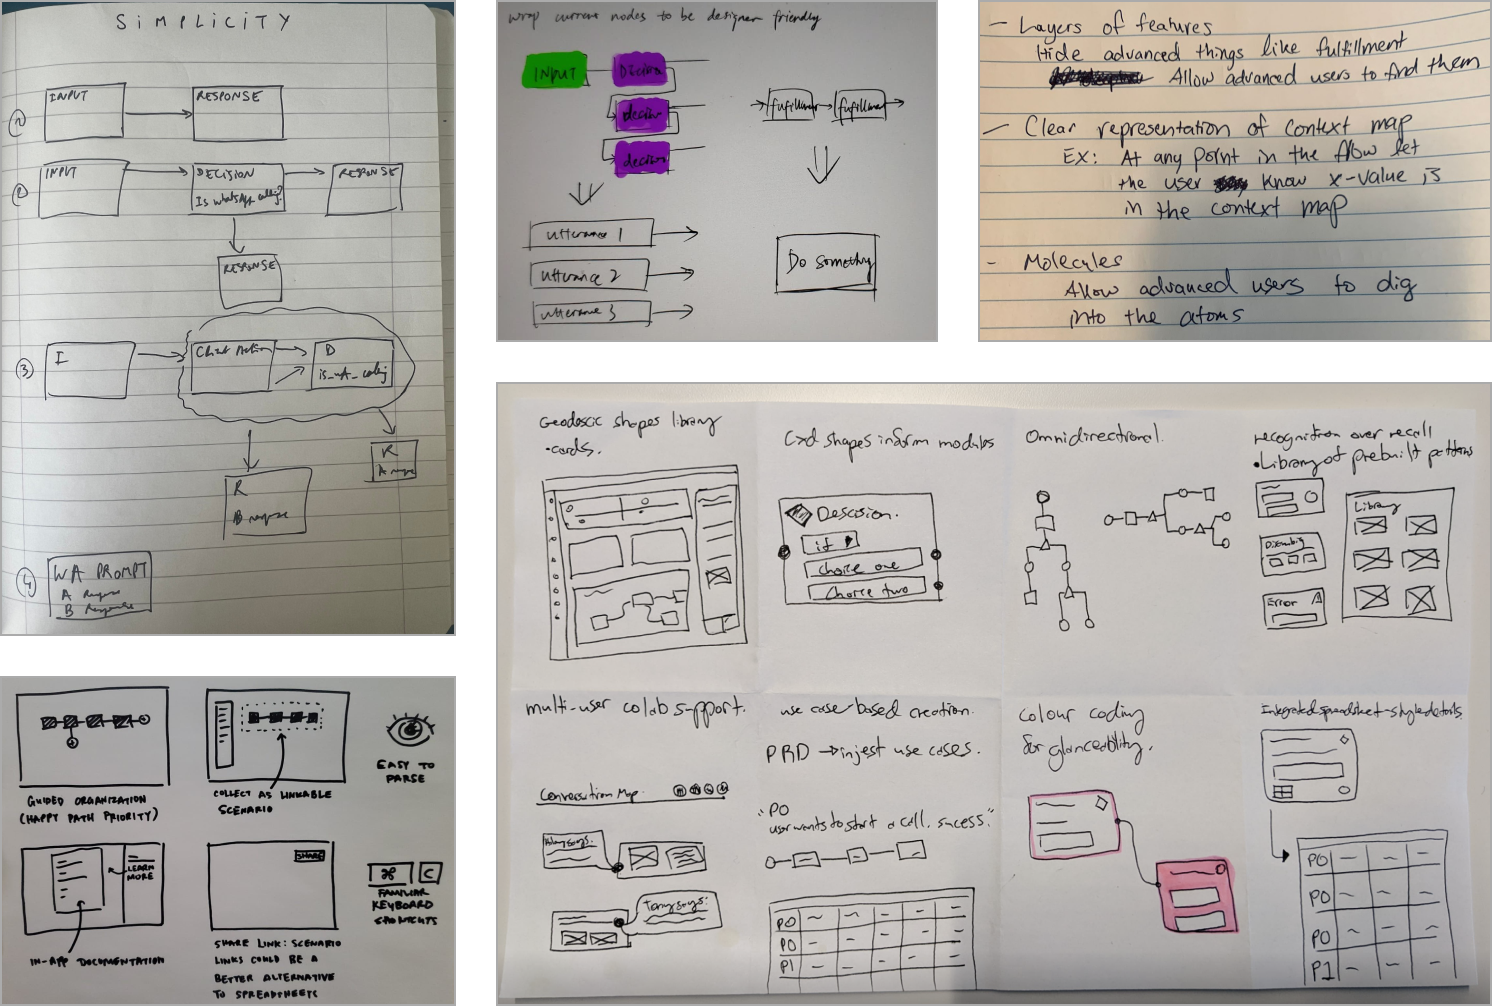 SIMPLICITY
1
INPUT
RESPONSE
2
INPUT
DECISION
Is whatsApp calling?
RESPONSE
RESPONSE
3
I
Client Action
D
is_wA_calling
R
A
R
B response
4
WA PROMPT
A
B Response
wrap current nodes to be designer friendly
INPUT
Decision
decision
decision
utterance 1
utterance 2
utterance 3
fulfillment
fulfillment
Do something
- Layers of features
Hide advanced things like fulfillment
Allow advanced users to find them
- Clear representation of context map
EX: At any point in the flow let
the user know x-value is
in the context map
- Molecules
Allow advanced users to dig
into the atoms
GUIDED ORGANIZATION
(HAPPY PATH PRIORITY)
COLLECT AS LINKABLE
SCENARIO
EASY TO
PARSE
LEARN
MORE
IN-APP DOCUMENTATION
SHARE
SHARE LINK: SCENARIO
LINKS COULD BE A
BETTER ALTERNATIVE
TO SPREADSHEETS
⌘ C
FAMILIAR
KEYBOARD
SHORTCUTS
Geodescic shapes library
•cards.
Cxd shapes inform modules
Descision.
if
choice one
choice two
Omnidirectional.
recognition over recall
•Library of prebuilt patterns
Library
Disambig
Error
multi-user colab support.
Conversation Map.
says:
Tony says:
use case based creation.
PRD →injest use cases.
"PO
user wants to start a call. sucess."
PO
PO
P1
Colour coding
for glanceability.
Integrated spreadsheet-single details.
PO
PO
PO
P1